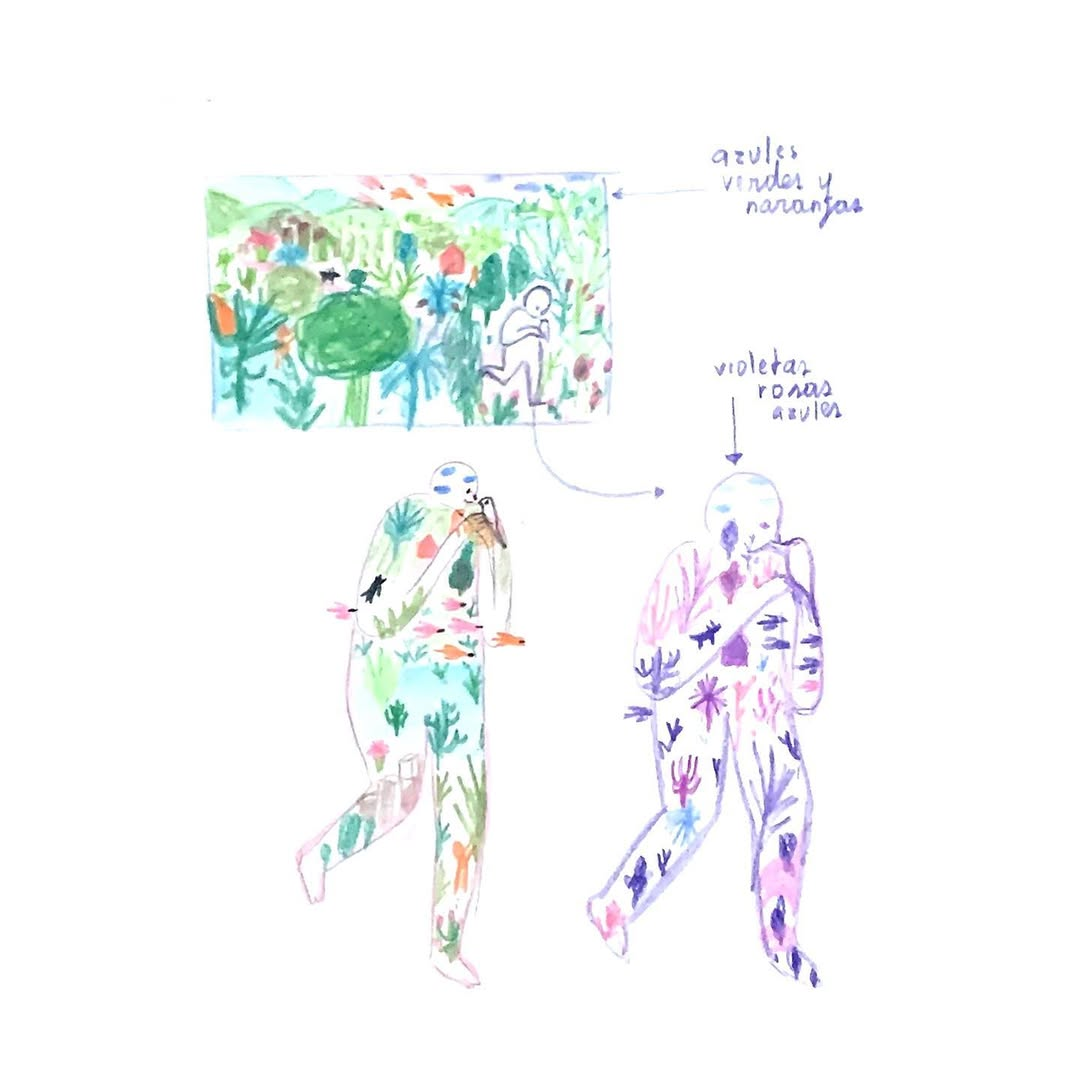 azules
verdes y
naranjas
violetas
rosas
azules